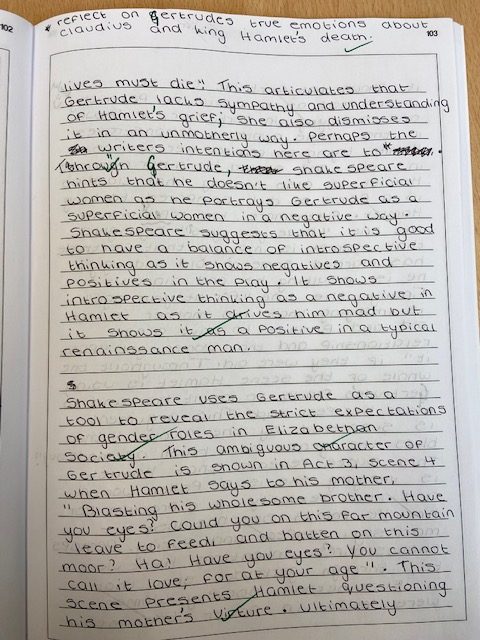 102
* reflect on Gertrudes true emotions about
claudius and king Hamlet's death.
103
lives must die". This articulates that
Gertrude lacks sympathy and understanding
of Hamlet's grief; she also dismisses
it in an unmotherly way. Perhaps the
writers intentions here are to "
Through Gertrude, shakespeare
hints that he doesn't like superficial
women as he portrays Gertrude as a
superficial women in a negative way.
Shakespeare suggests that it is good
to have a balance of introspective
thinking as it shows negatives and
positives in the play. It shows
introspective thinking as a negative in
Hamlet as it drives him mad but
it shows it as a positive in a typical
renainssance man.
Shakespeare uses Gertrude as a
tool to reveal the strict expectations
of gender roles in Elizabethan
Society. This ambiguous character of
Gertrude is shown in Act 3, scene 4
when Hamlet says to his mother,
" Blasting his wholesome brother. Have
you eyes? Could you on this far mountain
"leave to feed, and batten on this
moor? Ha! Have you eyes? You cannot
call it love, for at your age". This
scene presents Hamlet questioning
his mother's virture. Ultimately